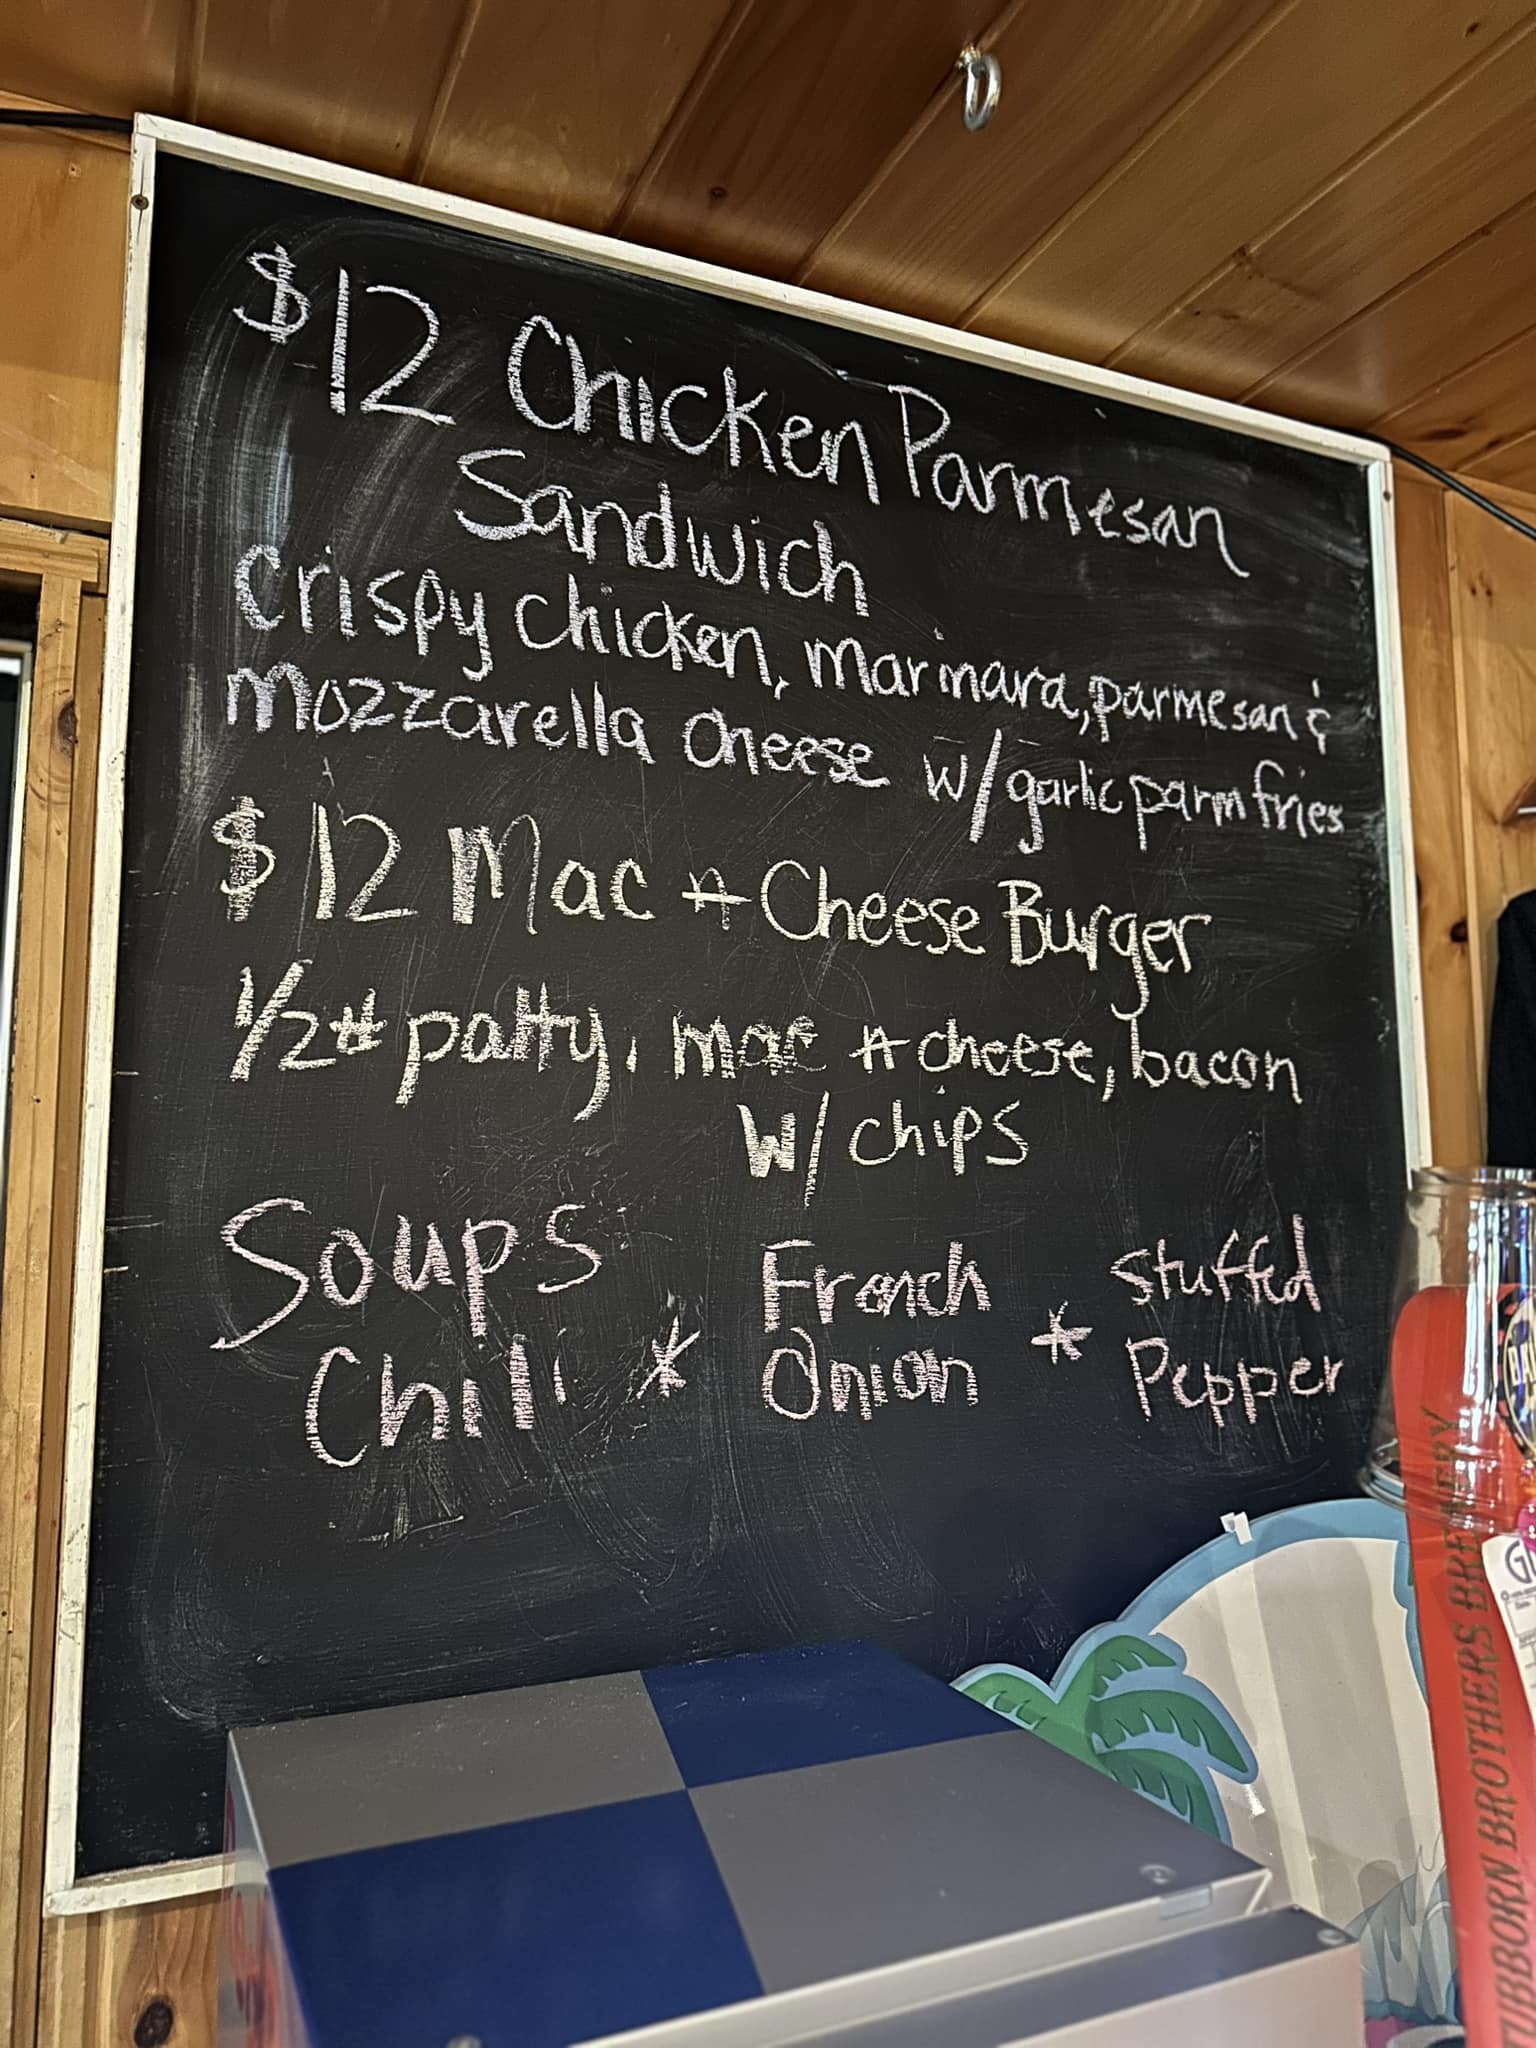 $12 Chicken Parmesan
Sandwich
Crispy chicken, marmara, parmesan &
mozzarella cheese w/garlic parm fries
$12 Mac + Cheese Burger
1/2# patty, mac + cheese, bacon
w/ chips
Soups
Chili * French Onion * Stuffed Pepper
STUBBORN BROTHERS BREWERY